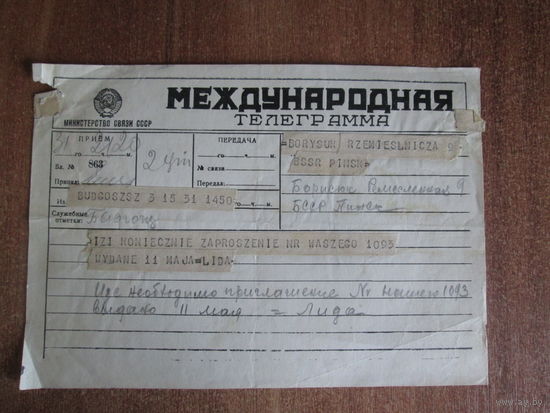 МЕЖДУНАРОДНАЯ
ТЕЛЕГРАММА
МИНИСТЕРСТВО СВЯЗИ СССР
ПРИЁМ
31 21 20
го ч. м.
Бл. № 863
Принял:
BUDGOSZSZ 3 15 31 1450
Служебные отметки:
Быдгощ
ПЕРЕДАЧА
го ч. м.
№ связи
Передал:
BORYSUK RZEMIESLNICZA 9
BSSR PINSK=
Борисюк Ремесленная 9
БССР Пинск
IZI KONIECZNIE ZAPROSZENIE NR WASZEGO 1093
WYDANE 11 MAJA=LIDA
необходимо приглашение Nr вашего 1093
выдано 11 мая = Лида
ay.by